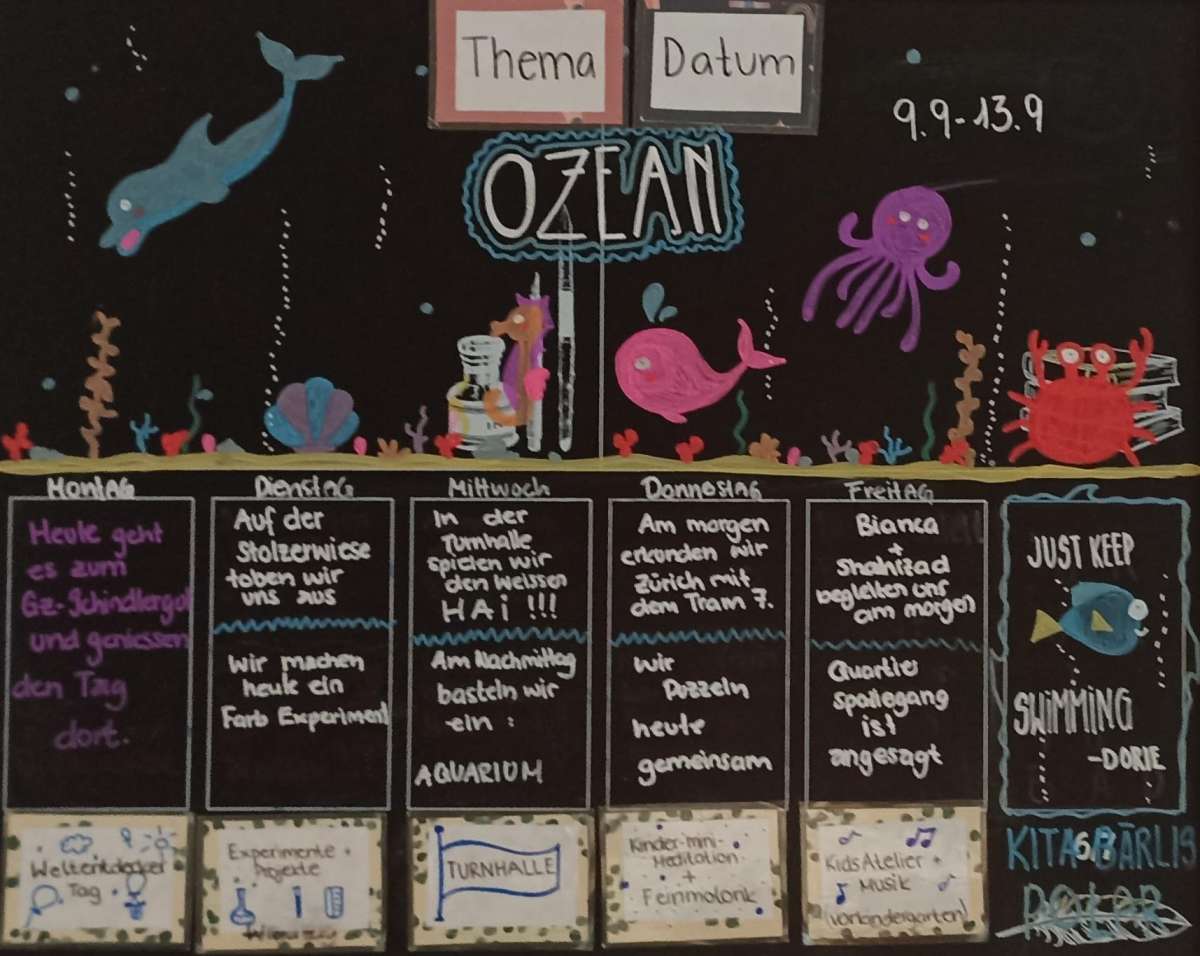 Thema
Datum
9.9-13.9
OZEAN
Montag
Heute geht
es zum
Gz-Schindlergut
und geniessen
den Tag
dort.
Weltentdecker
Tag
Dienstag
Auf der
Stolzerwiese
toben wir
uns aus
Wir machen
heute ein
Farb Experiment
Experimente +
Projekte
Mittwoch
In der
Turnhalle
spielen wir
den weissen
HAi !!!
Am Nachmittag
basteln wir
ein :
AQUARIUM
TURNHALLE
Donnostag
Am morgen
erkunden wir
Zürich mit
dem Tram 7.
Wir
Puzzeln
heute
gemeinsam
Kinder-mini-
Meditation
+
Feinmotorik
Freitag
Bianca
+
begleiten uns
am morgen
Quartier
ist
angesagt
Kids Atelier +
Musik
(vorkindergarten)
JUST KEEP
SWIMMING
-DORIE
KITA BÄRLIS